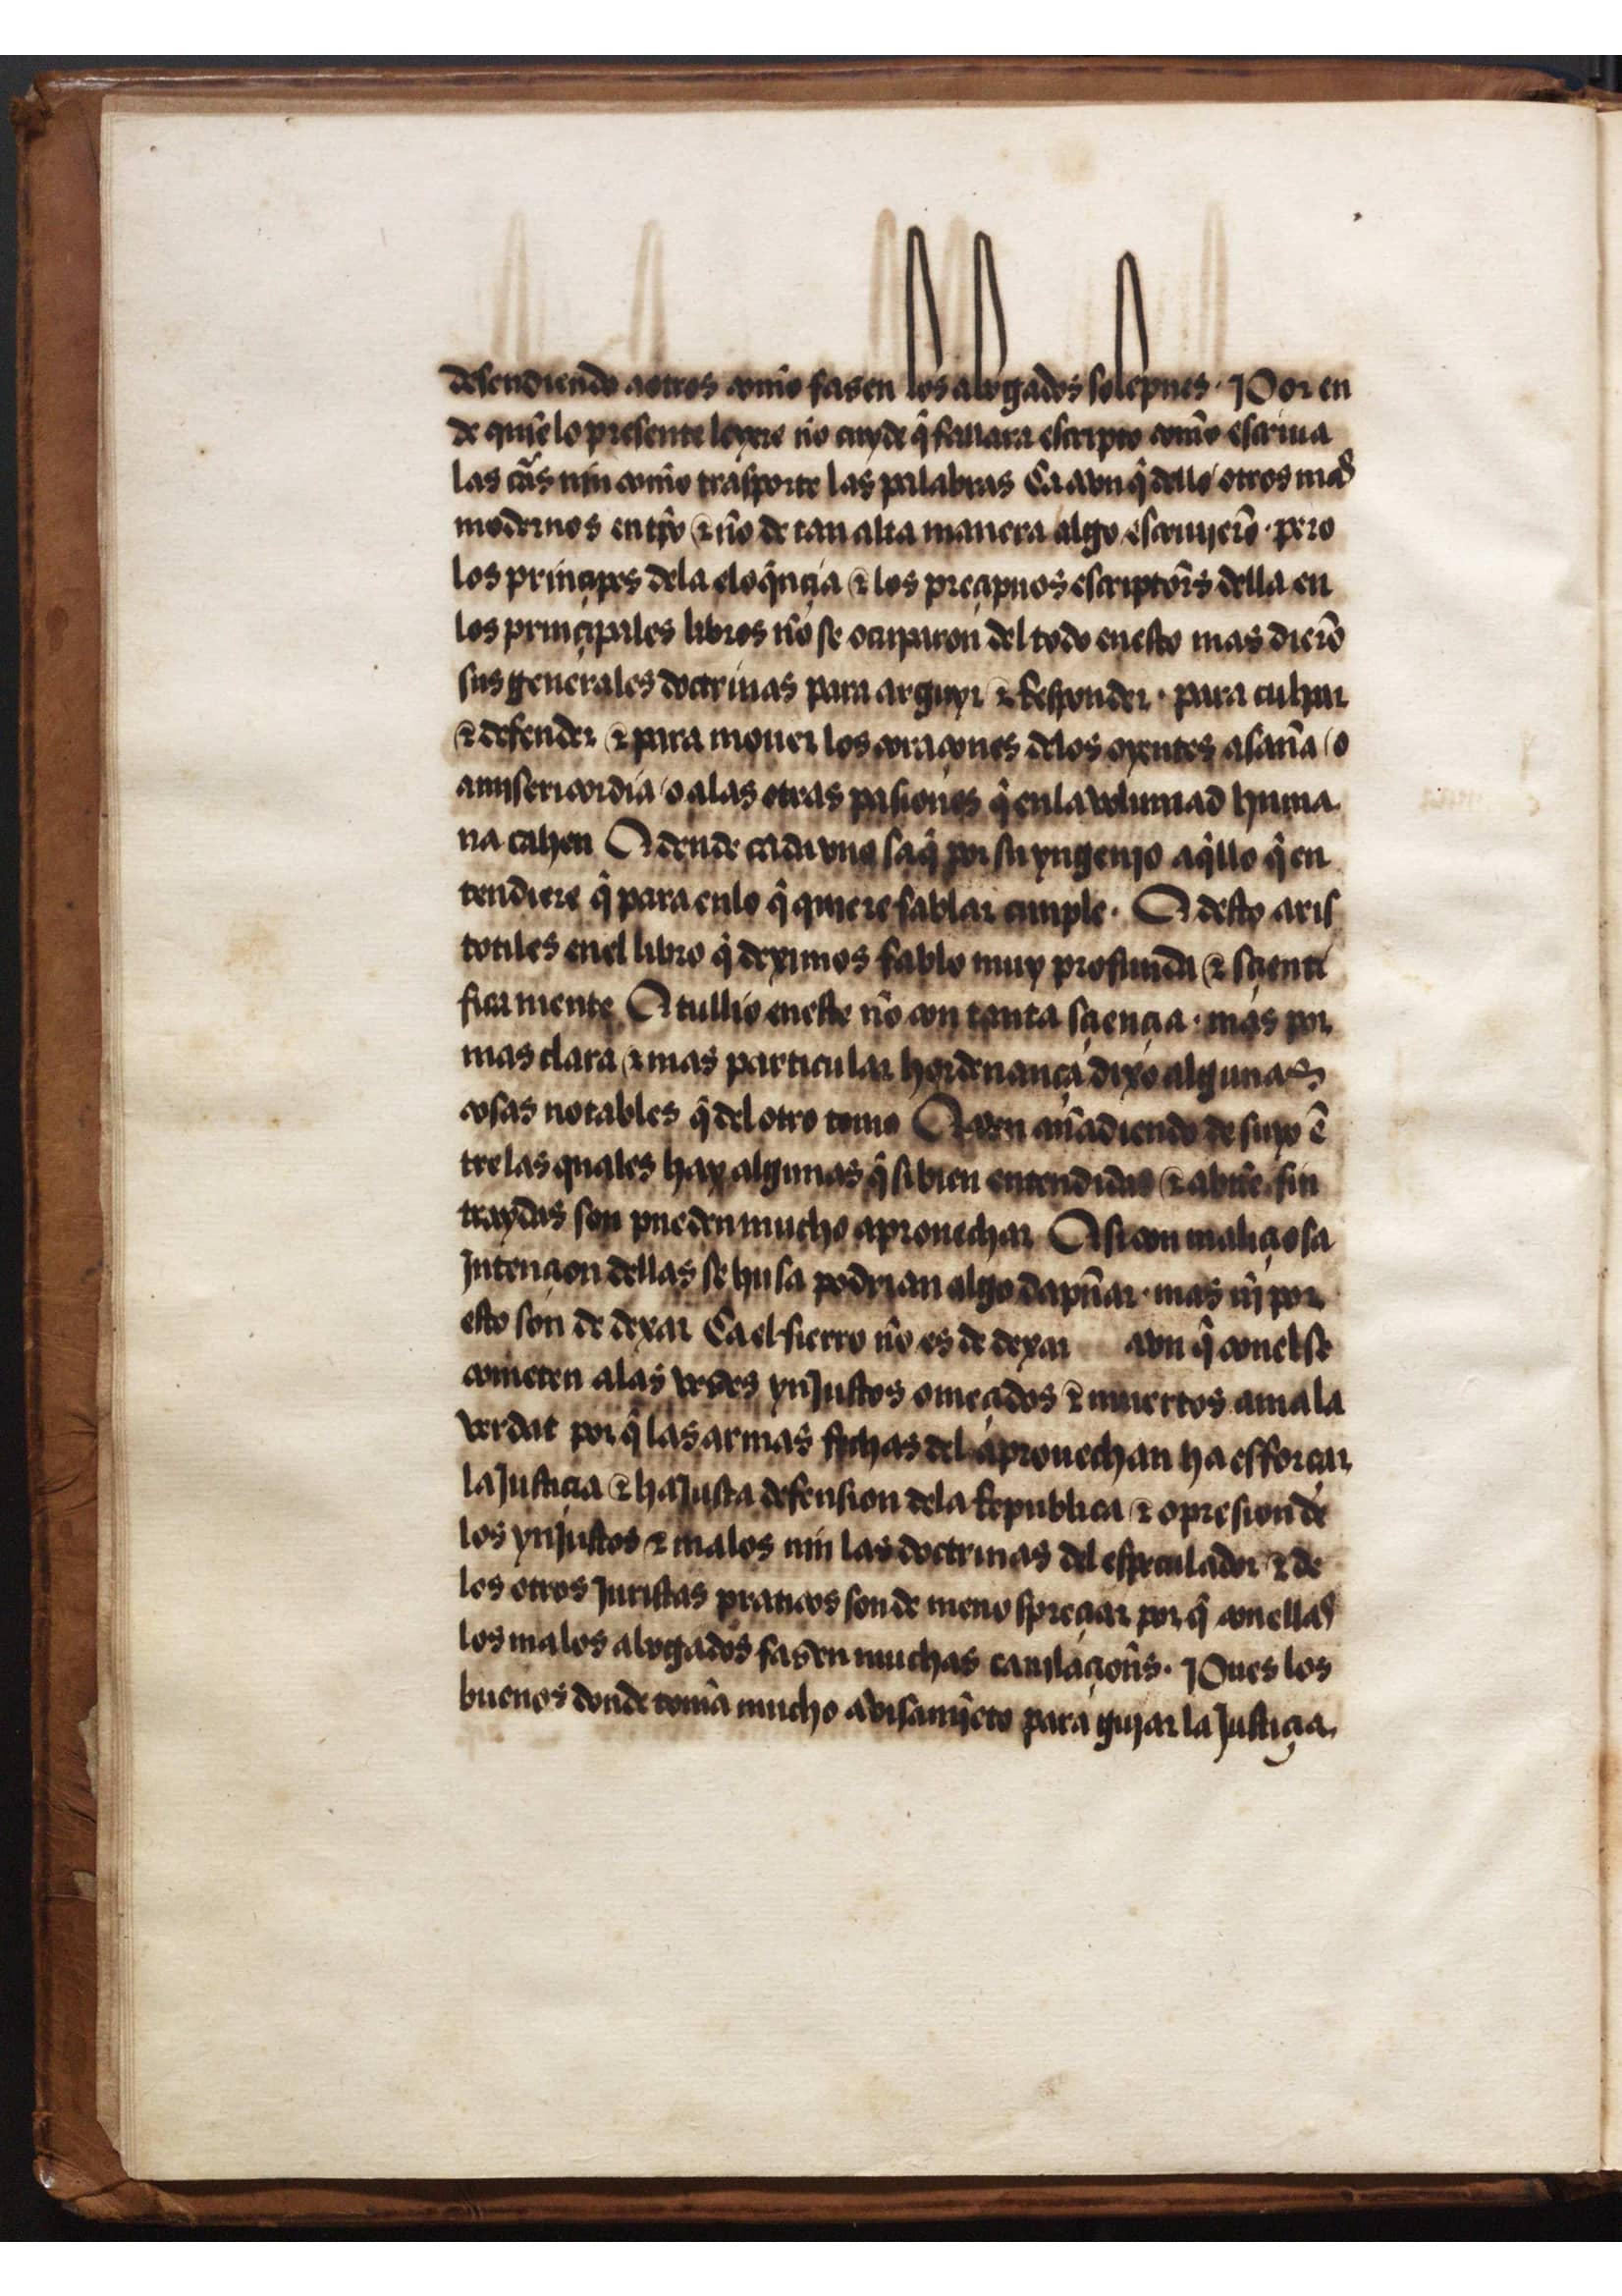 defendiendo a otros com̃o fasen los abogados solepnes · Por en
de quiẽ lo presente leyere nõ cuyde q̃ fallara escripto com̃o escriua
las cãs nin com̃o trasporte las palabras Ca avn q̃ dello otros mas
modernos en tp̃o & nõ de tan alta manera algo escriujerõ · pero
los prinçipes dela eloq̃nçia & los preçipuos escriptor̃s della en
los prinçipales libros nõ se ocuparon del todo enesto mas dierõ
sus generales doctrinas para arguyr & Responder · para culpar
& defender & para mouer los coraçones delos oyentes a saña / o
a mjsericordia / o alas otras pasiones q̃ enla voluntad huma
na cahen A dende cada vno saq̃ por su yngenjo aq̃llo q̃ en
tendiere q̃ para enlo q̃ qujere fablar cunple · A desto aris
totiles enel libro q̃ deximos fablo muy profunda & sçienti
fica mente A tullio eneste nõ con tanta sçiençia · mas por
mas clara & mas particular hordenança dixo algunas
cosas notables q̃ del otro tomo A avn añadiendo de suyo ẽ
tre las quales hay algunas q̃ si bien entendidas & a buẽ fin
traydas son pueden mucho aprouechar A si con maliçiosa
Jntençion dellas se husa podrian algo dapñar · mas nj̃ por
esto son de dexar Ca el fierro nõ es de dexar avn q̃ conel se
cometen alas veses ynJustos omeçidos & muertos a mala
verdat por q̃ las armas fechas del aprouechan ha esforçar
la Justiçia & ha Justa defension dela Republica & opresion de
los ynJustos & malos nin las doctrinas del especulador & de
los otros Juristas praticos son de meno spreçiar por q̃ con ellas
los malos abogados fasen muchas cauilaçioñs · Pues los
buenos donde tomã mucho avisamjẽto para gujar la Justiçia